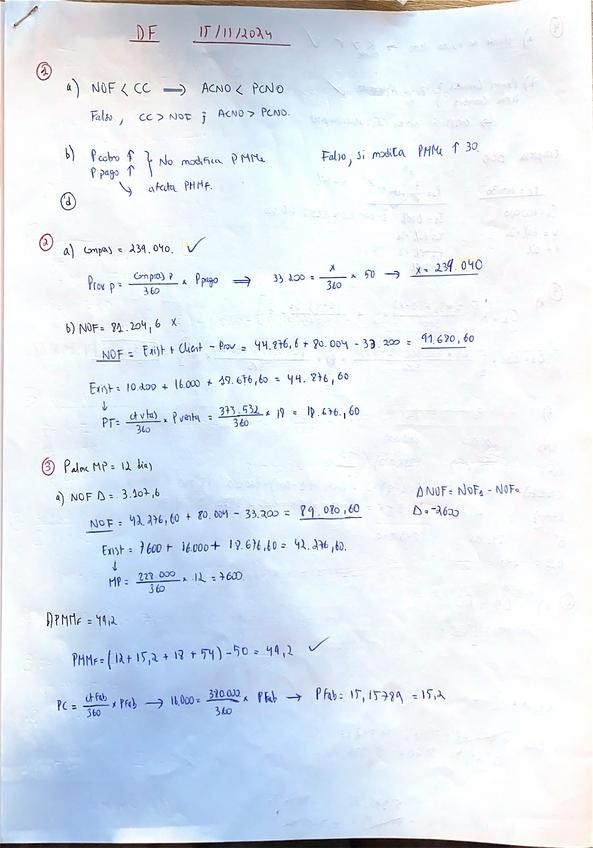 DF 15/11/2024
1
a) NOF < CC → ACNO < PCNO
Falso, CC > NOF ; ACNO > PCNO.
b) P cobro ↑ } No modifica PMMe
P pago ↑
Falso, si modifica PMMe ↑ 30
↘ afecta PMMF.
d
2
a) Compras = 239.040. ✓
Prov p = Compras p / 360 × P pago ⟹ 33.200 = x / 360 × 50 → x = 239.040
b) NOF = 81.204,6 x
NOF = Exist + Client - Prov = 44.876,6 + 80.004 - 33.200 = 91.680,60
Exist = 10.200 + 16.000 + 18.676,60 = 44.876,60
↓
PT = ct vtas / 360 × P venta = 373.532 / 360 × 18 = 18.676,60
3 P almc MP = 12 días
a) NOF Δ = 3.107,6
Δ NOF = NOF1 - NOF0
NOF = 42.276,60 + 80.004 - 33.200 = 89.080,60
Δ = -2600
Exist = 7600 + 16.000 + 18.676,60 = 42.276,60.
↓
MP = 228.000 / 360 × 12 = 7600.
b) PMMF = 49,2
PMMF = (12 + 15,2 + 18 + 54) - 50 = 49,2 ✓
PC = ct Fab / 360 × P Fab → 16.000 = 380.000 / 360 × P Fab → P Fab = 15,15789 = 15,2